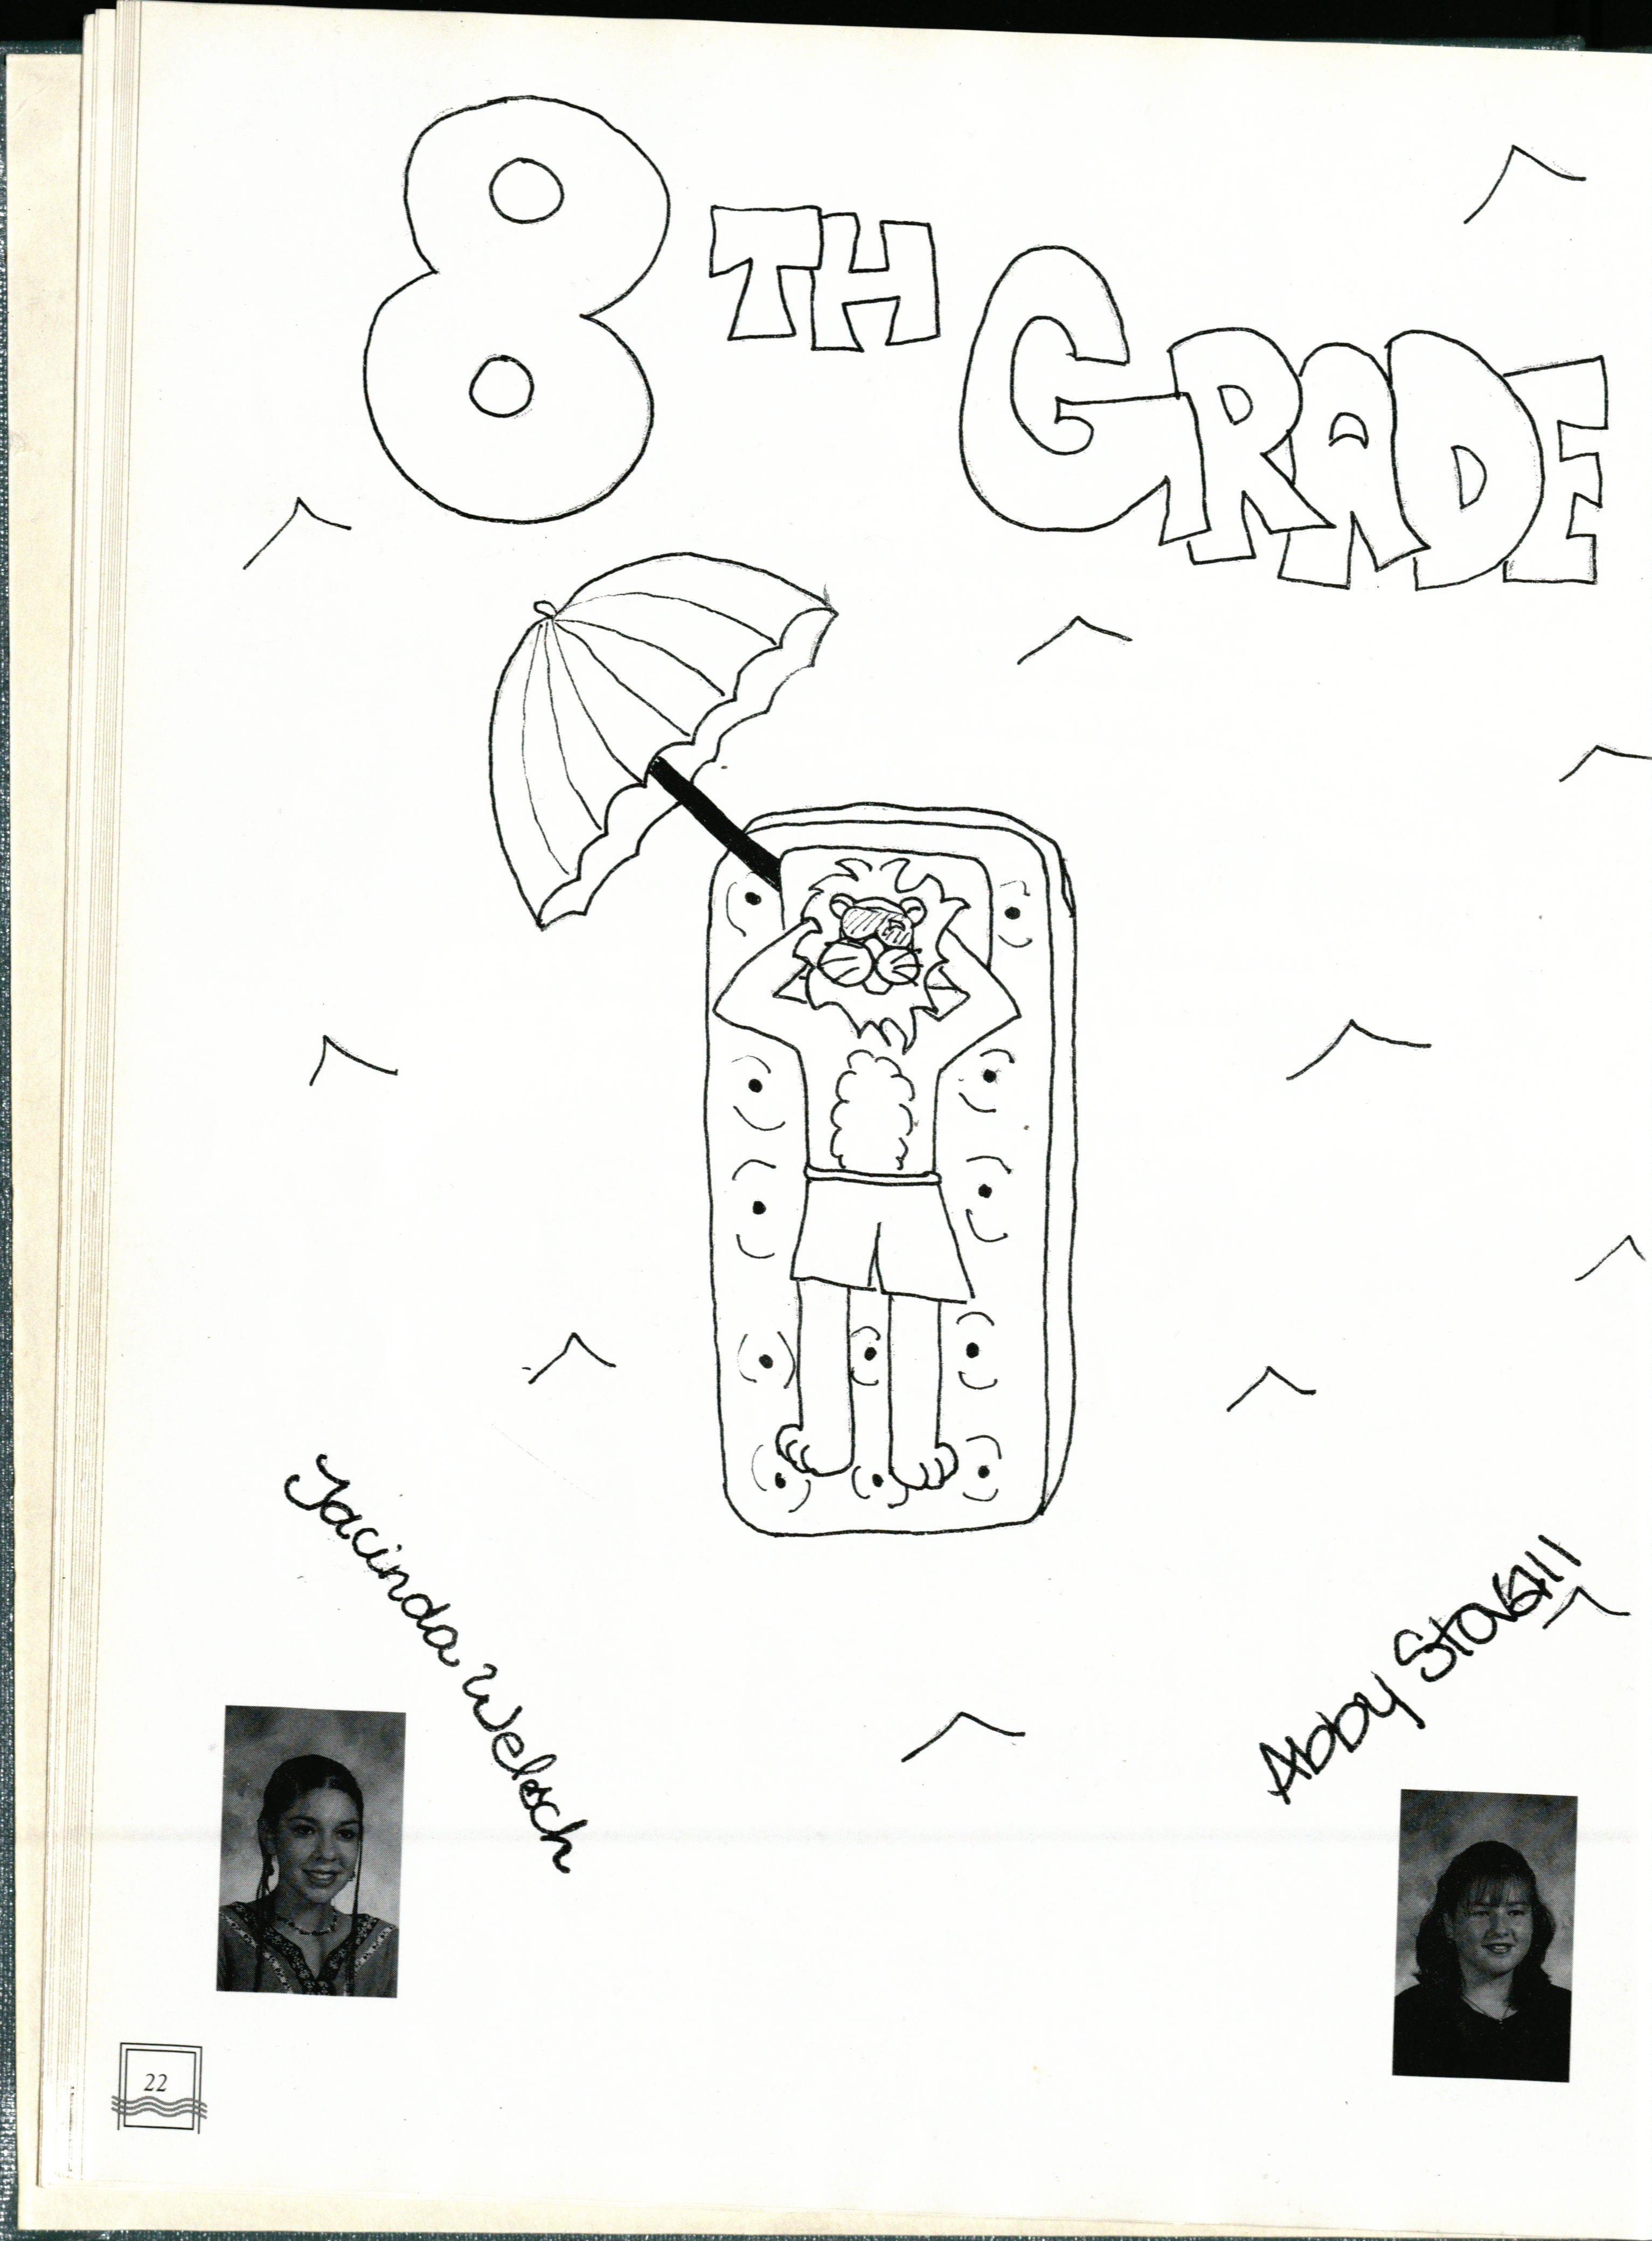 8TH GRADE
Jacinda Welsch
Abby Stovall
22